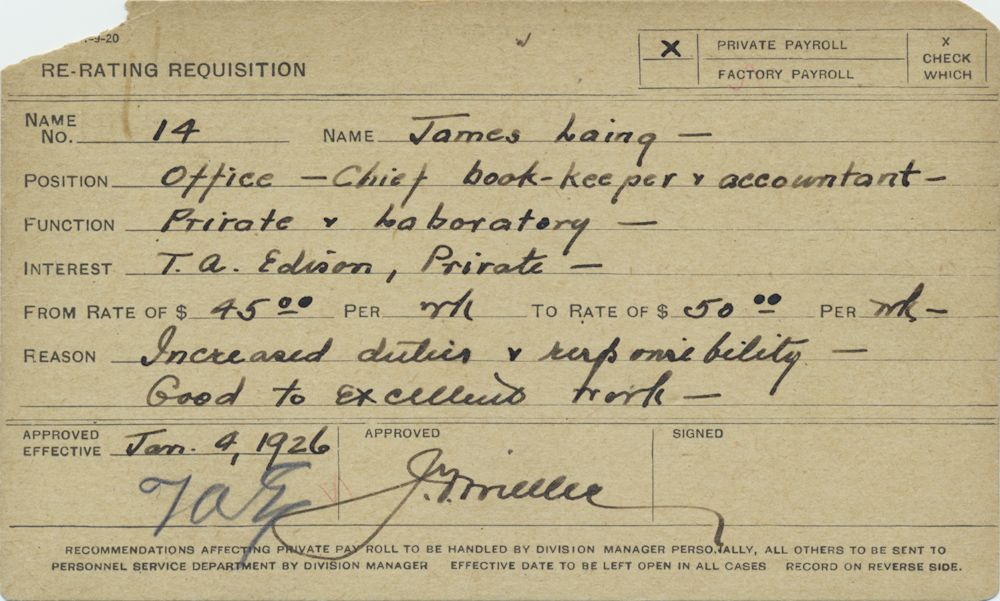 -9-20
RE-RATING REQUISITION
X PRIVATE PAYROLL
FACTORY PAYROLL
X CHECK WHICH
NAME NO. 14 NAME James Laing —
POSITION Office — Chief book-keeper & accountant —
FUNCTION Private & Laboratory —
INTEREST T. A. Edison, Private —
FROM RATE OF $ 45 00 PER wk TO RATE OF $ 50 00 PER wk —
REASON Increased duties & responsibility —
Good to excellent work —
APPROVED EFFECTIVE Jan. 4, 1926
APPROVED
SIGNED
TAE
RECOMMENDATIONS AFFECTING PRIVATE PAY ROLL TO BE HANDLED BY DIVISION MANAGER PERSONALLY, ALL OTHERS TO BE SENT TO
PERSONNEL SERVICE DEPARTMENT BY DIVISION MANAGER EFFECTIVE DATE TO BE LEFT OPEN IN ALL CASES RECORD ON REVERSE SIDE.